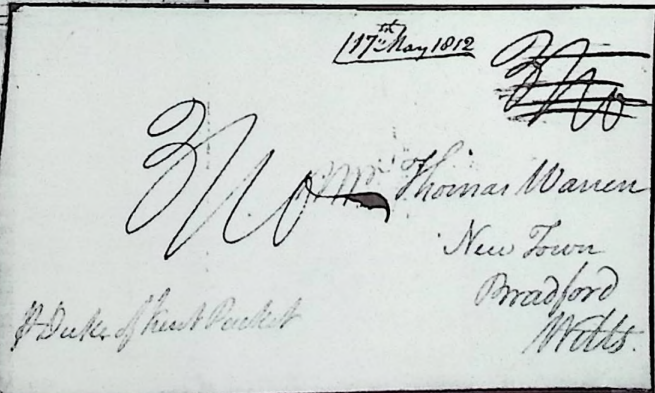 17th May 1812
Mr Thomas Warren
New Town
Bradford
Wilts.
Duke of Kent Packet